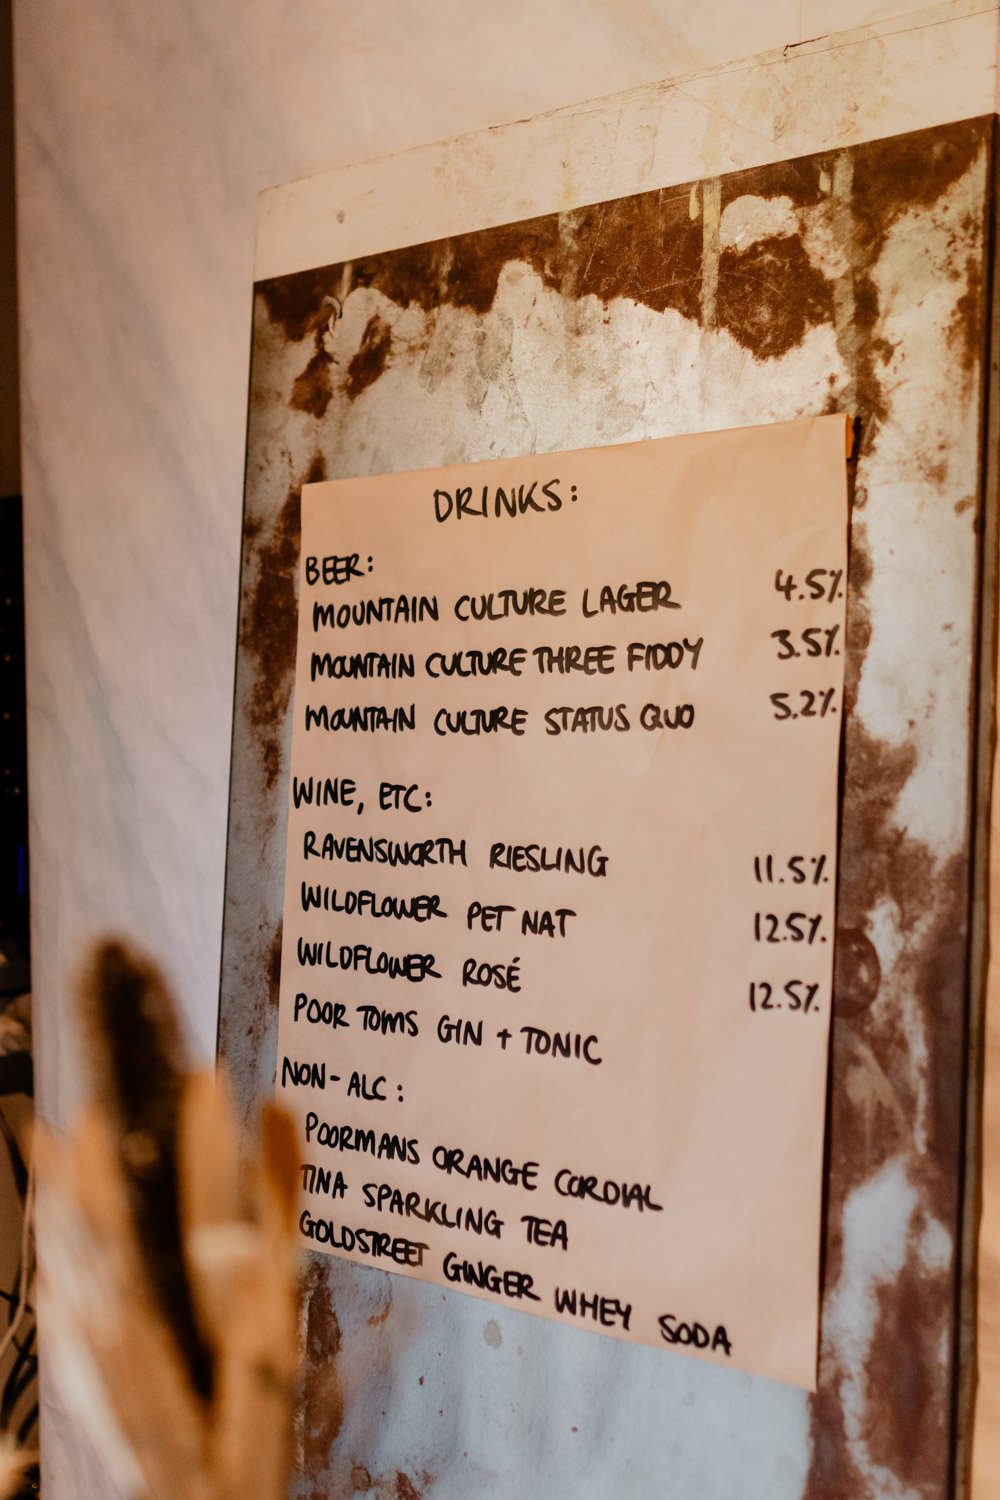 DRINKS:
BEER:
MOUNTAIN CULTURE LAGER 4.5%
MOUNTAIN CULTURE THREE FIDDY 3.5%
MOUNTAIN CULTURE STATUS QUO 5.2%
WINE, ETC:
RAVENSWORTH RIESLING 11.5%
WILDFLOWER PET NAT 12.5%
WILDFLOWER ROSÉ 12.5%
POOR TOMS GIN + TONIC
NON-ALC:
POORMANS ORANGE CORDIAL
TINA SPARKLING TEA
GOLDSTREET GINGER WHEY SODA